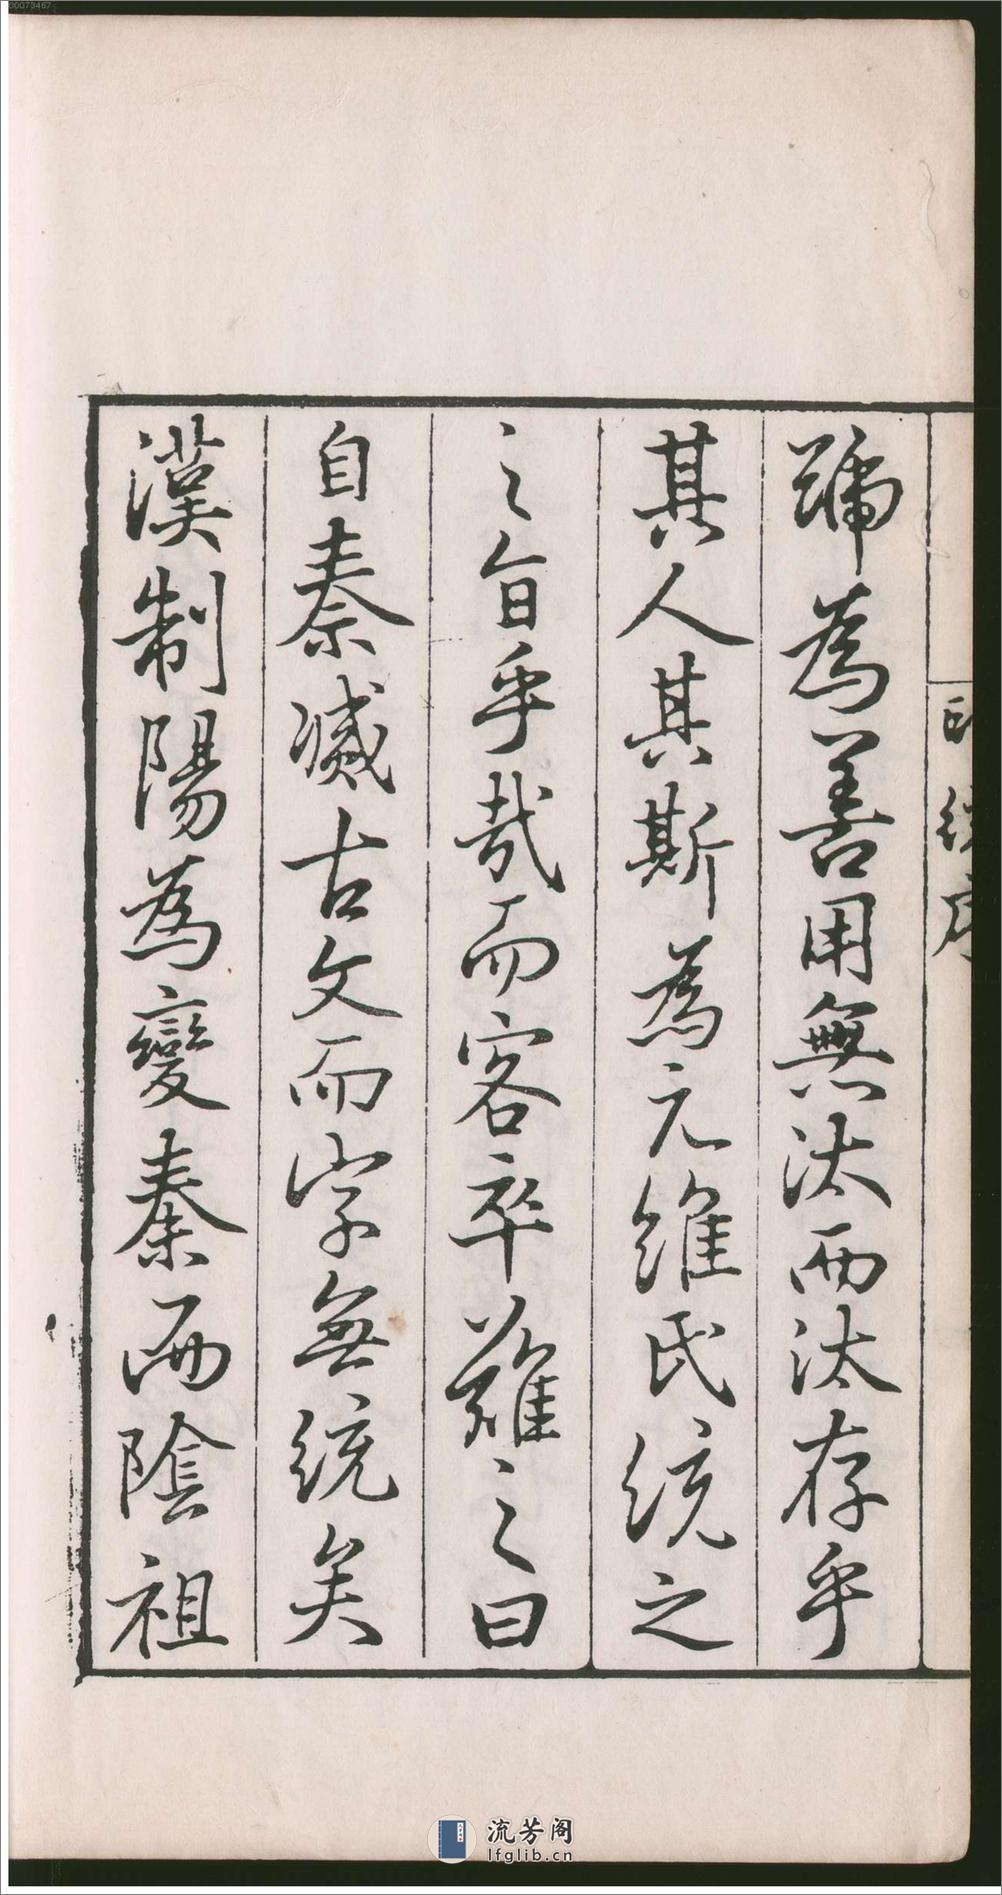 號為善用無汰而汰存乎
其人其斯為元維氏統之
之旨乎哉而客卒難之曰
自秦滅古文而字無統矣
漢制陽為變秦而陰祖
印統序
00073467
流芳阁
lfglib.cn